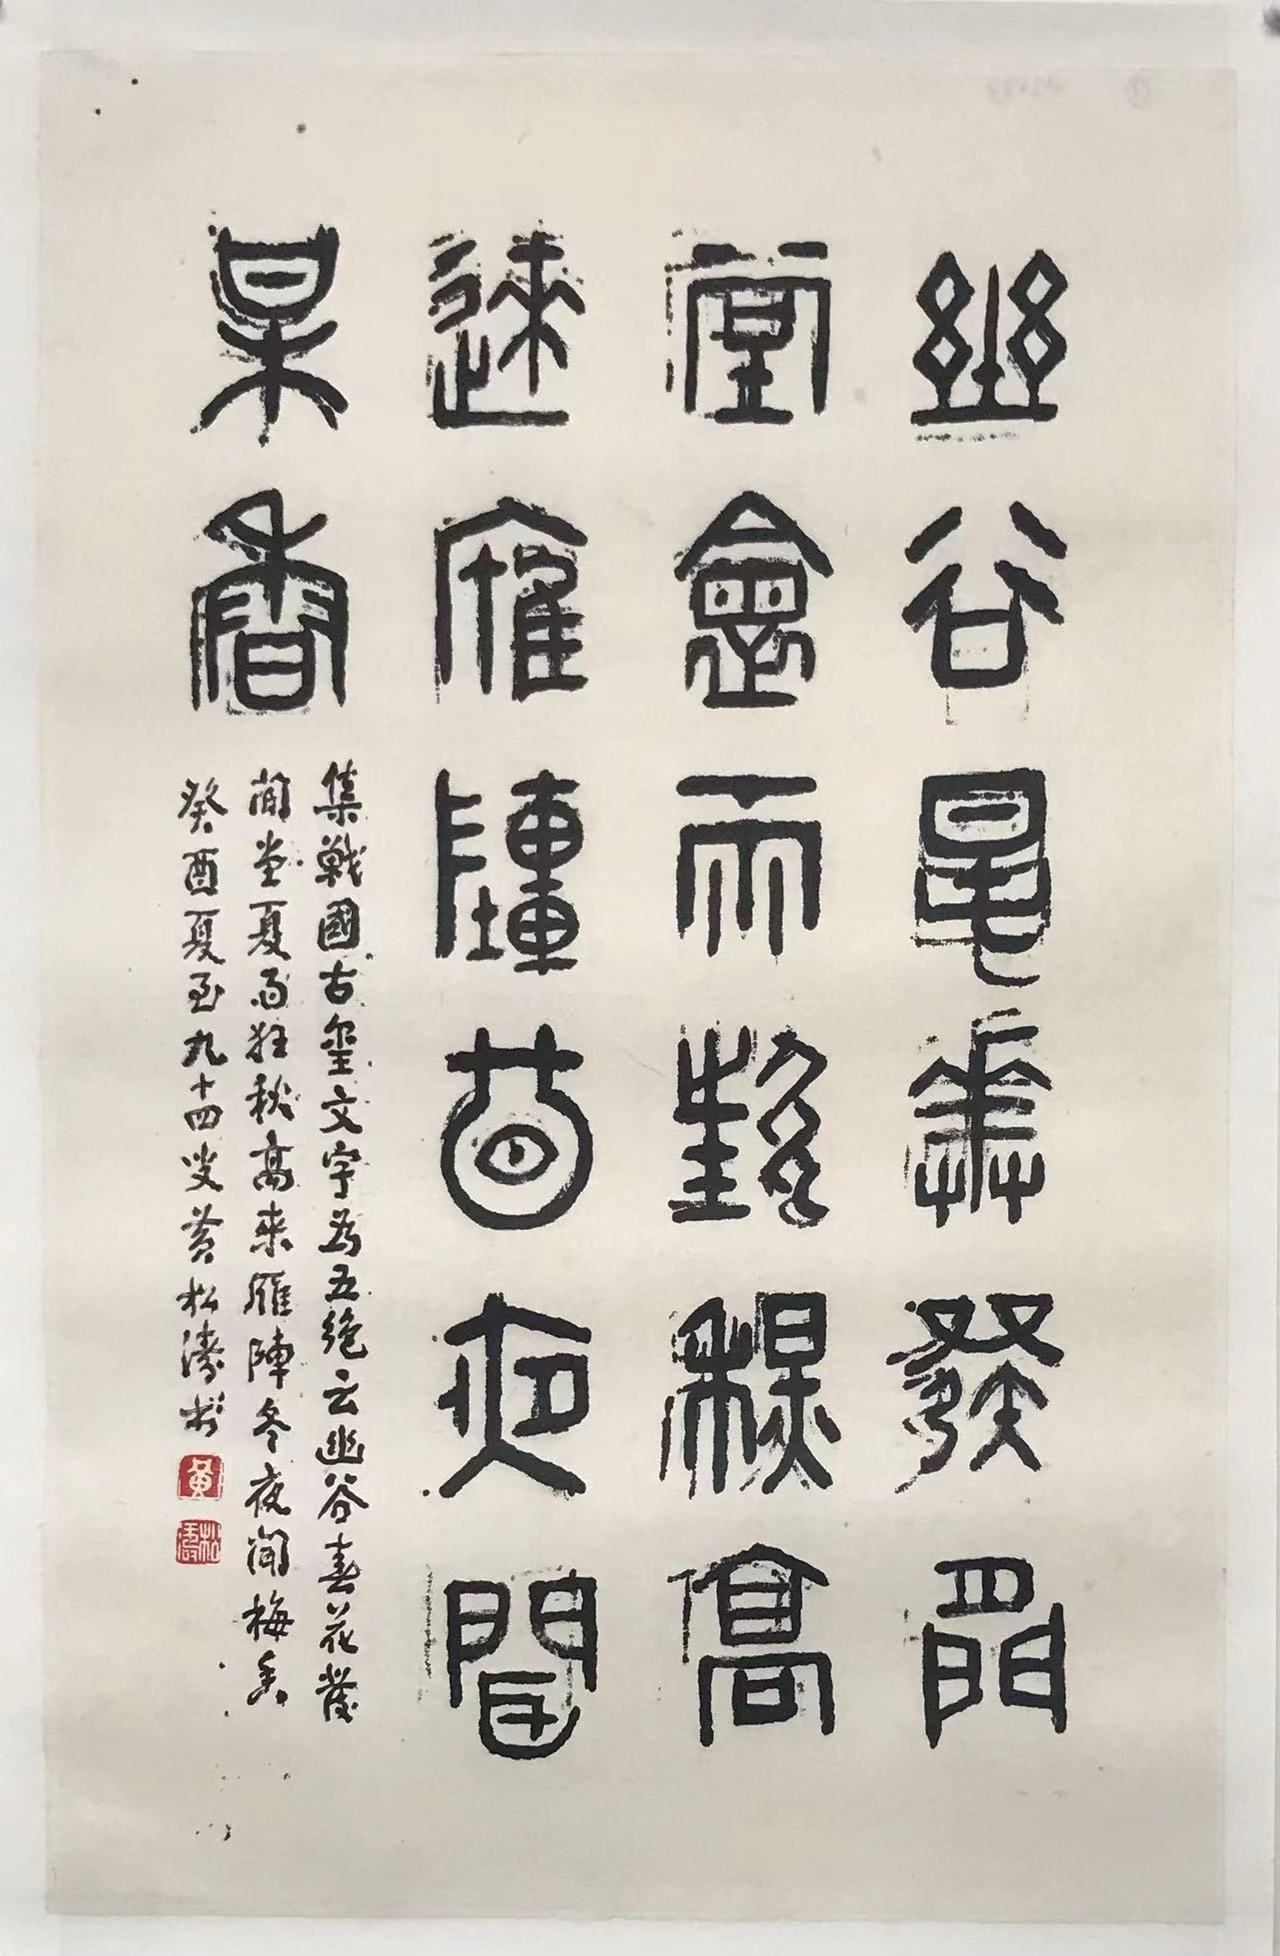 幽谷春華發閒
堂夏雨狂穐高
逨雁陣冬夜聞
某香
集戰國古璽文字為五絕云幽谷春花發
閒堂夏雨狂秋高來雁陣冬夜聞梅香
癸酉夏至九十四叟黃松濤書
黃
松濤